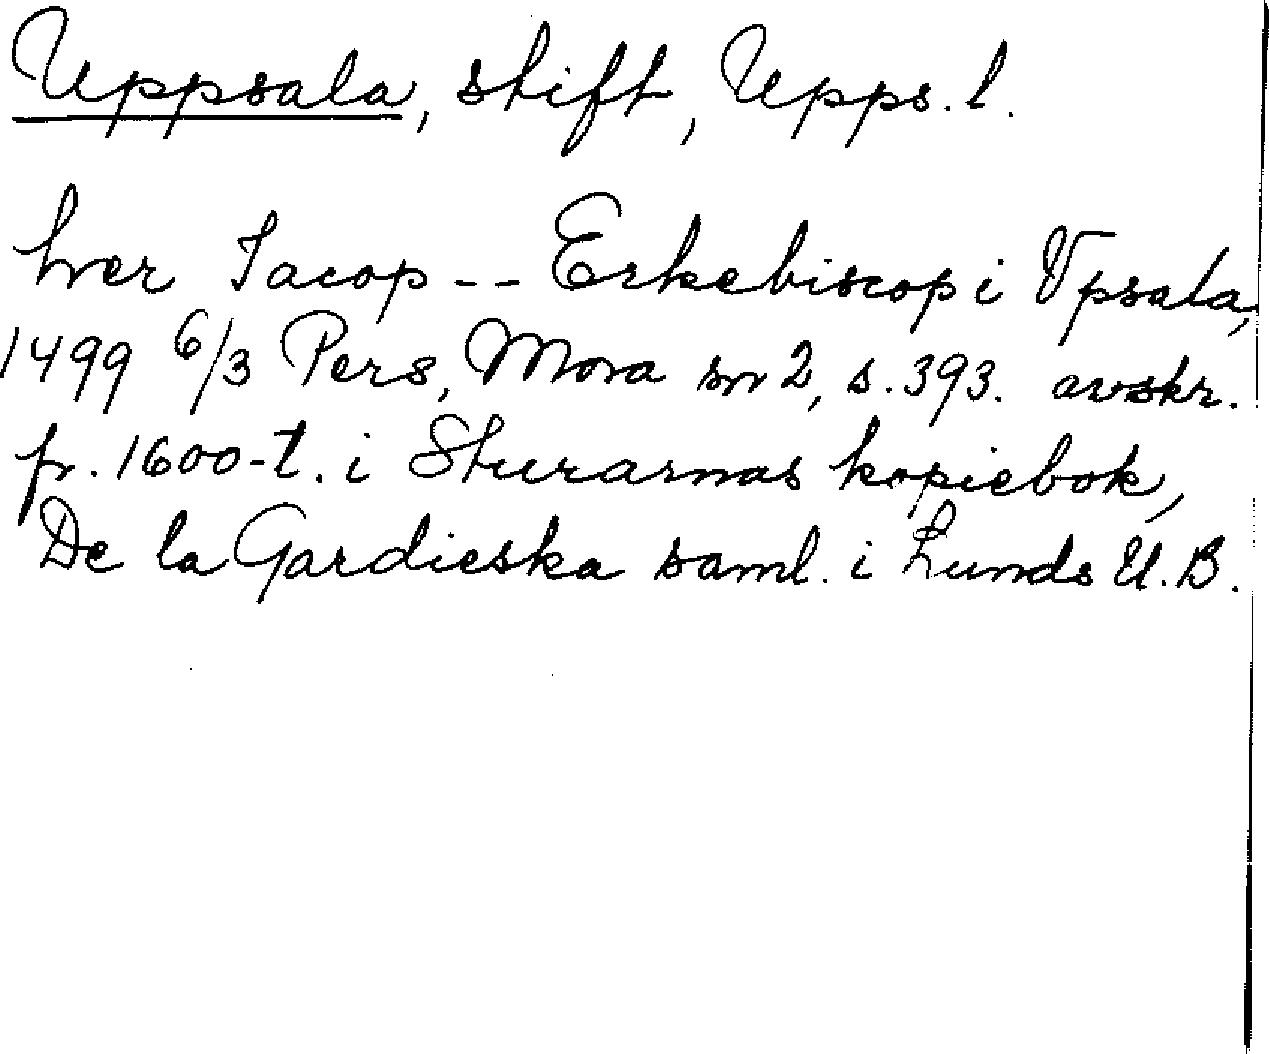 Uppsala, stift, Upps. l.
hver Iacop -- Erkebiscop i Vpsala,
1499 6/3 Pers, Mora sn 2, s. 393. avskr.
fr. 1600-t. i Sturarnas kopiebok,
De la Gardieska saml. i Lunds U.B.